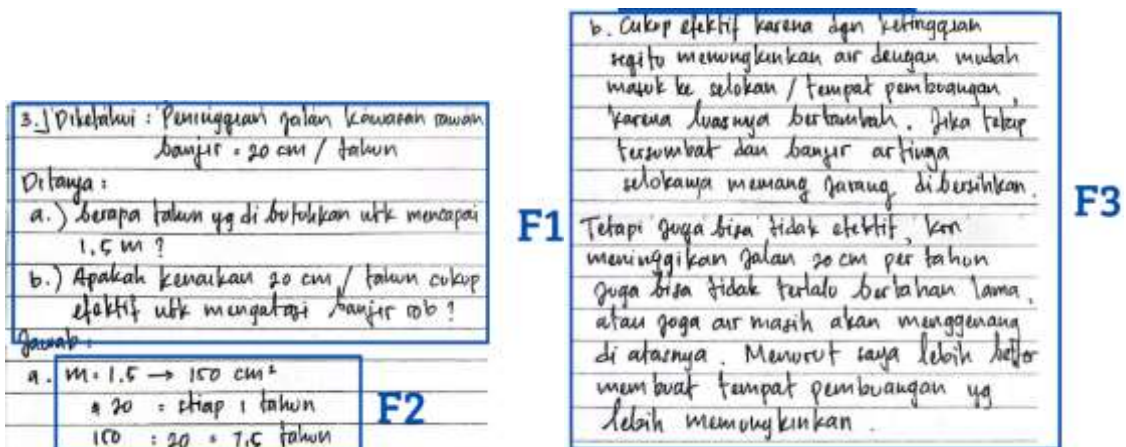 3.) Diketahui : Peninggian jalan kawasan rawan
banjir = 20 cm / tahun
Ditanya :
a.) berapa tahun yg di butuhkan utk mencapai
1.5 m ?
b.) Apakah kenaikan 20 cm / tahun cukup
efektif utk mengatasi banjir rob ?
Jawab :
a. m = 1.5 → 150 cm²
20 = stiap 1 tahun
150 : 20 = 7,5 tahun
F1
F2
b. Cukup efektif karena dgn ketinggian
segitu memungkinkan air dengan mudah
masuk ke selokan / tempat pembuangan,
karena luasnya bertambah. Jika tetap
tersumbat dan banjir artinya
selokanya memang jarang dibersihkan.
Tetapi juga bisa tidak efektif, krn
meninggikan jalan 20 cm per tahun
juga bisa tidak terlalu bertahan lama,
atau joga air masih akan menggenang
di atasnya. Menurut saya lebih better
membuat tempat pembuangan yg
lebih memungkinkan.
F3